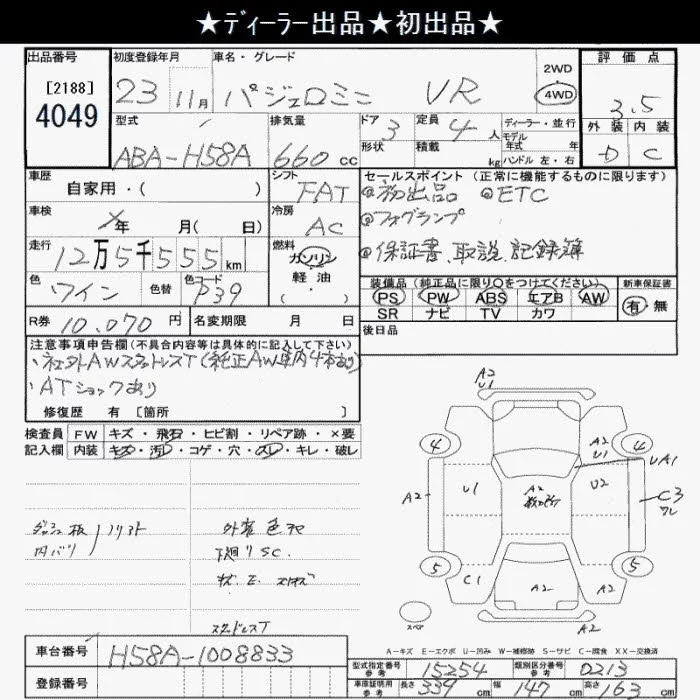 ★ディーラー出品★初出品★
出品番号 初度登録年月 車名・グレード 評価点
[2188]
4049
23 11月 パジェロミニ VR 2WD 4WD 3.5
外装 内装
D C
型式 排気量 ドア 定員 ディーラー・並行
ABA-H58A 660cc 3 4人 モデル年式 年
形状 積載 kg ハンドル 左・右
車歴 シフト セールスポイント(正常に機能するものに限ります)
自家用・( ) FAT @初出品 @ETC
@フォグランプ
車検 年 月( 日) 冷房 AC
@保証書、取説、記録簿
走行 12万5千555km 燃料 ガソリン・軽油・( )
色 ワイン 色替 色コード P39
装備品(純正品に限り○をつけてください) 新車保証書
PS PW ABS エアB AW 有・無
SR ナビ TV カワ
R券 10,070円 名変期限 月 日
後日品
注意事項申告欄(不具合内容等は具体的に記入して下さい)
・社外AWスタッドレスT(純正AW車内4本あり)
・ATショックあり
修復歴 有 [箇所 ]
検査員 FW キズ・飛石・ヒビ割・リペア跡・×要
記入欄 内装 キズ・汚レ・コゲ・穴・スレ・キレ・破レ
ダッシュ板
内バリ
外装色
下廻りSC.
スタッドレスT
A2
U1
4 4
A2
U1
UA1
A2 U1 A2 U2 C3
ワレ
5 5
C1 A2 A2
スペア
A2
A-キズ E-エクボ U-凹み W-補修跡 S-サビ C-腐食 XX-交換済
車台番号 H58A-1008833
登録番号
型式指定番号 参考 15254 類別区分番号 参考 0213
車庫証明用 参考 長さ 339cm 幅 147cm 高さ 163cm